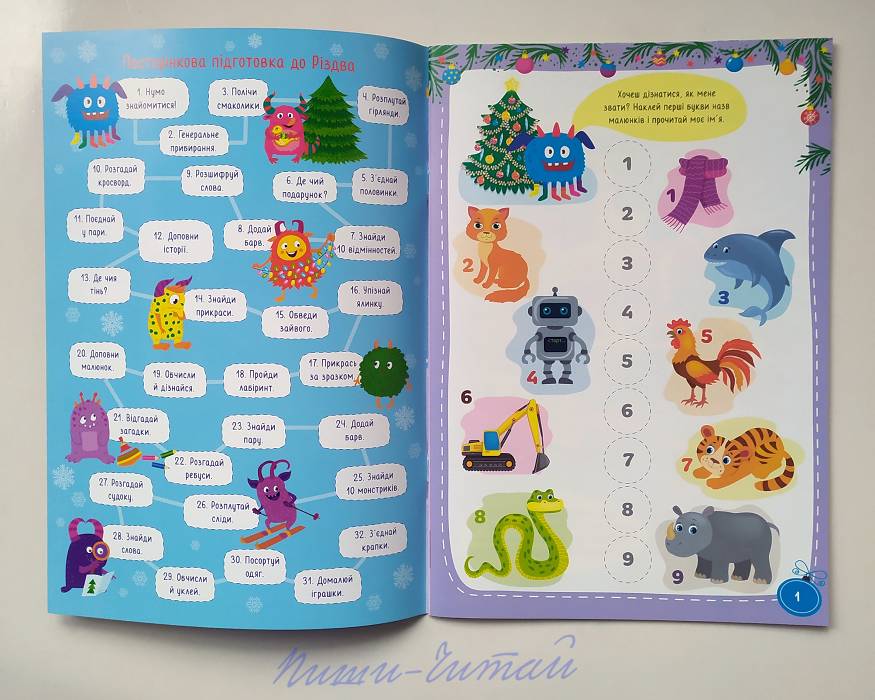 Посторінкова підготовка до Різдва
1. Нумо
знайомитися!
2. Генеральне
прибирання.
3. Полічи
смаколики.
4. Розплутай
гірлянди.
5. З'єднай
половинки.
6. Де чий
подарунок?
7. Знайди
10 відмінностей.
8. Додай
барв.
9. Розшифруй
слова.
10. Розгадай
кросворд.
11. Поєднай
у пари.
12. Доповни
історії.
13. Де чия
тінь?
14. Знайди
прикраси.
15. Обведи
зайвого.
16. Упізнай
ялинку.
17. Прикрась
за зразком.
18. Пройди
лабіринт.
19. Обчисли
й дізнайся.
20. Доповни
малюнок.
21. Відгадай
загадки.
22. Розгадай
ребуси.
23. Знайди
пару.
24. Додай
барв.
25. Знайди
10 монстриків.
26. Розплутай
сліди.
27. Розгадай
судоку.
28. Знайди
слова.
29. Обчисли
й уклей.
30. Посортуй
одяг.
31. Домалюй
іграшки.
32. З'єднай
крапки.
Хочеш дізнатися, як мене
звати? Наклей перші букви назв
малюнків і прочитай моє ім'я.
1
2
3
4
5
6
7
8
9
1
2
3
старт...
4
5
6
7
8
9
1
Пиши-Читай